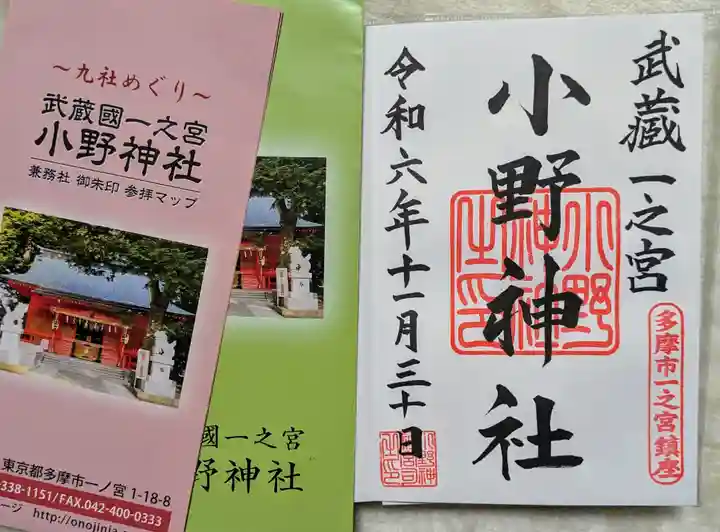 ～九社めぐり～
武蔵國一之宮
小野神社
兼務社 御朱印 参拝マップ
東京都多摩市一ノ宮 1-18-8
338-1151/FAX.042-400-0333
ージ http://onojinja
國一之宮
野神社
武蔵一之宮
小野神社
令和六年十一月三十日
多摩市一之宮鎮座
小野
神社
之印